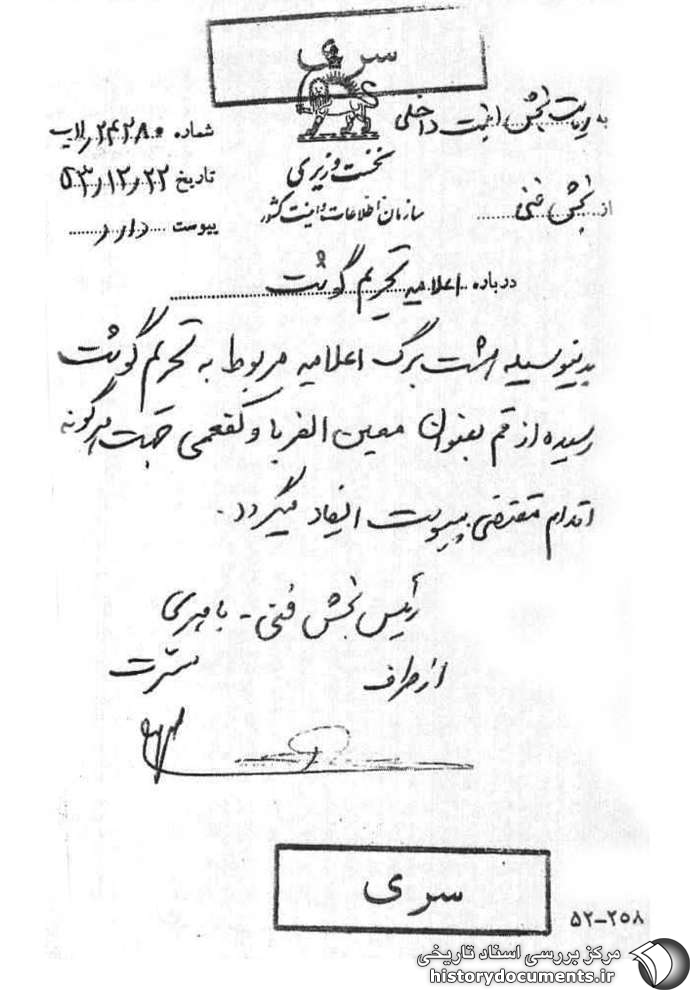 سری
به ریاست بخش امنیت داخلی
شماره ۲۴۲۸۰
نخست وزیری
تاریخ ۵۳٫۱۲٫۲۲
از بخش فنی
سازمان اطلاعات و امنیت کشور
پیوست دارد
درباره اعلامیه تحریم گوشت
بدینوسیله هشت برگ اعلامیه مربوط به تحریم گوشت
رسیده از قم بعنوان معین الغربا و کفعمی جهت هرگونه
اقدام مقتضی بپیوست ایفاد میگردد.
رئیس بخش فنی -
از طرف
سری
۵۲-۲۵۸
مرکز بررسی اسناد تاریخی
historydocuments.ir